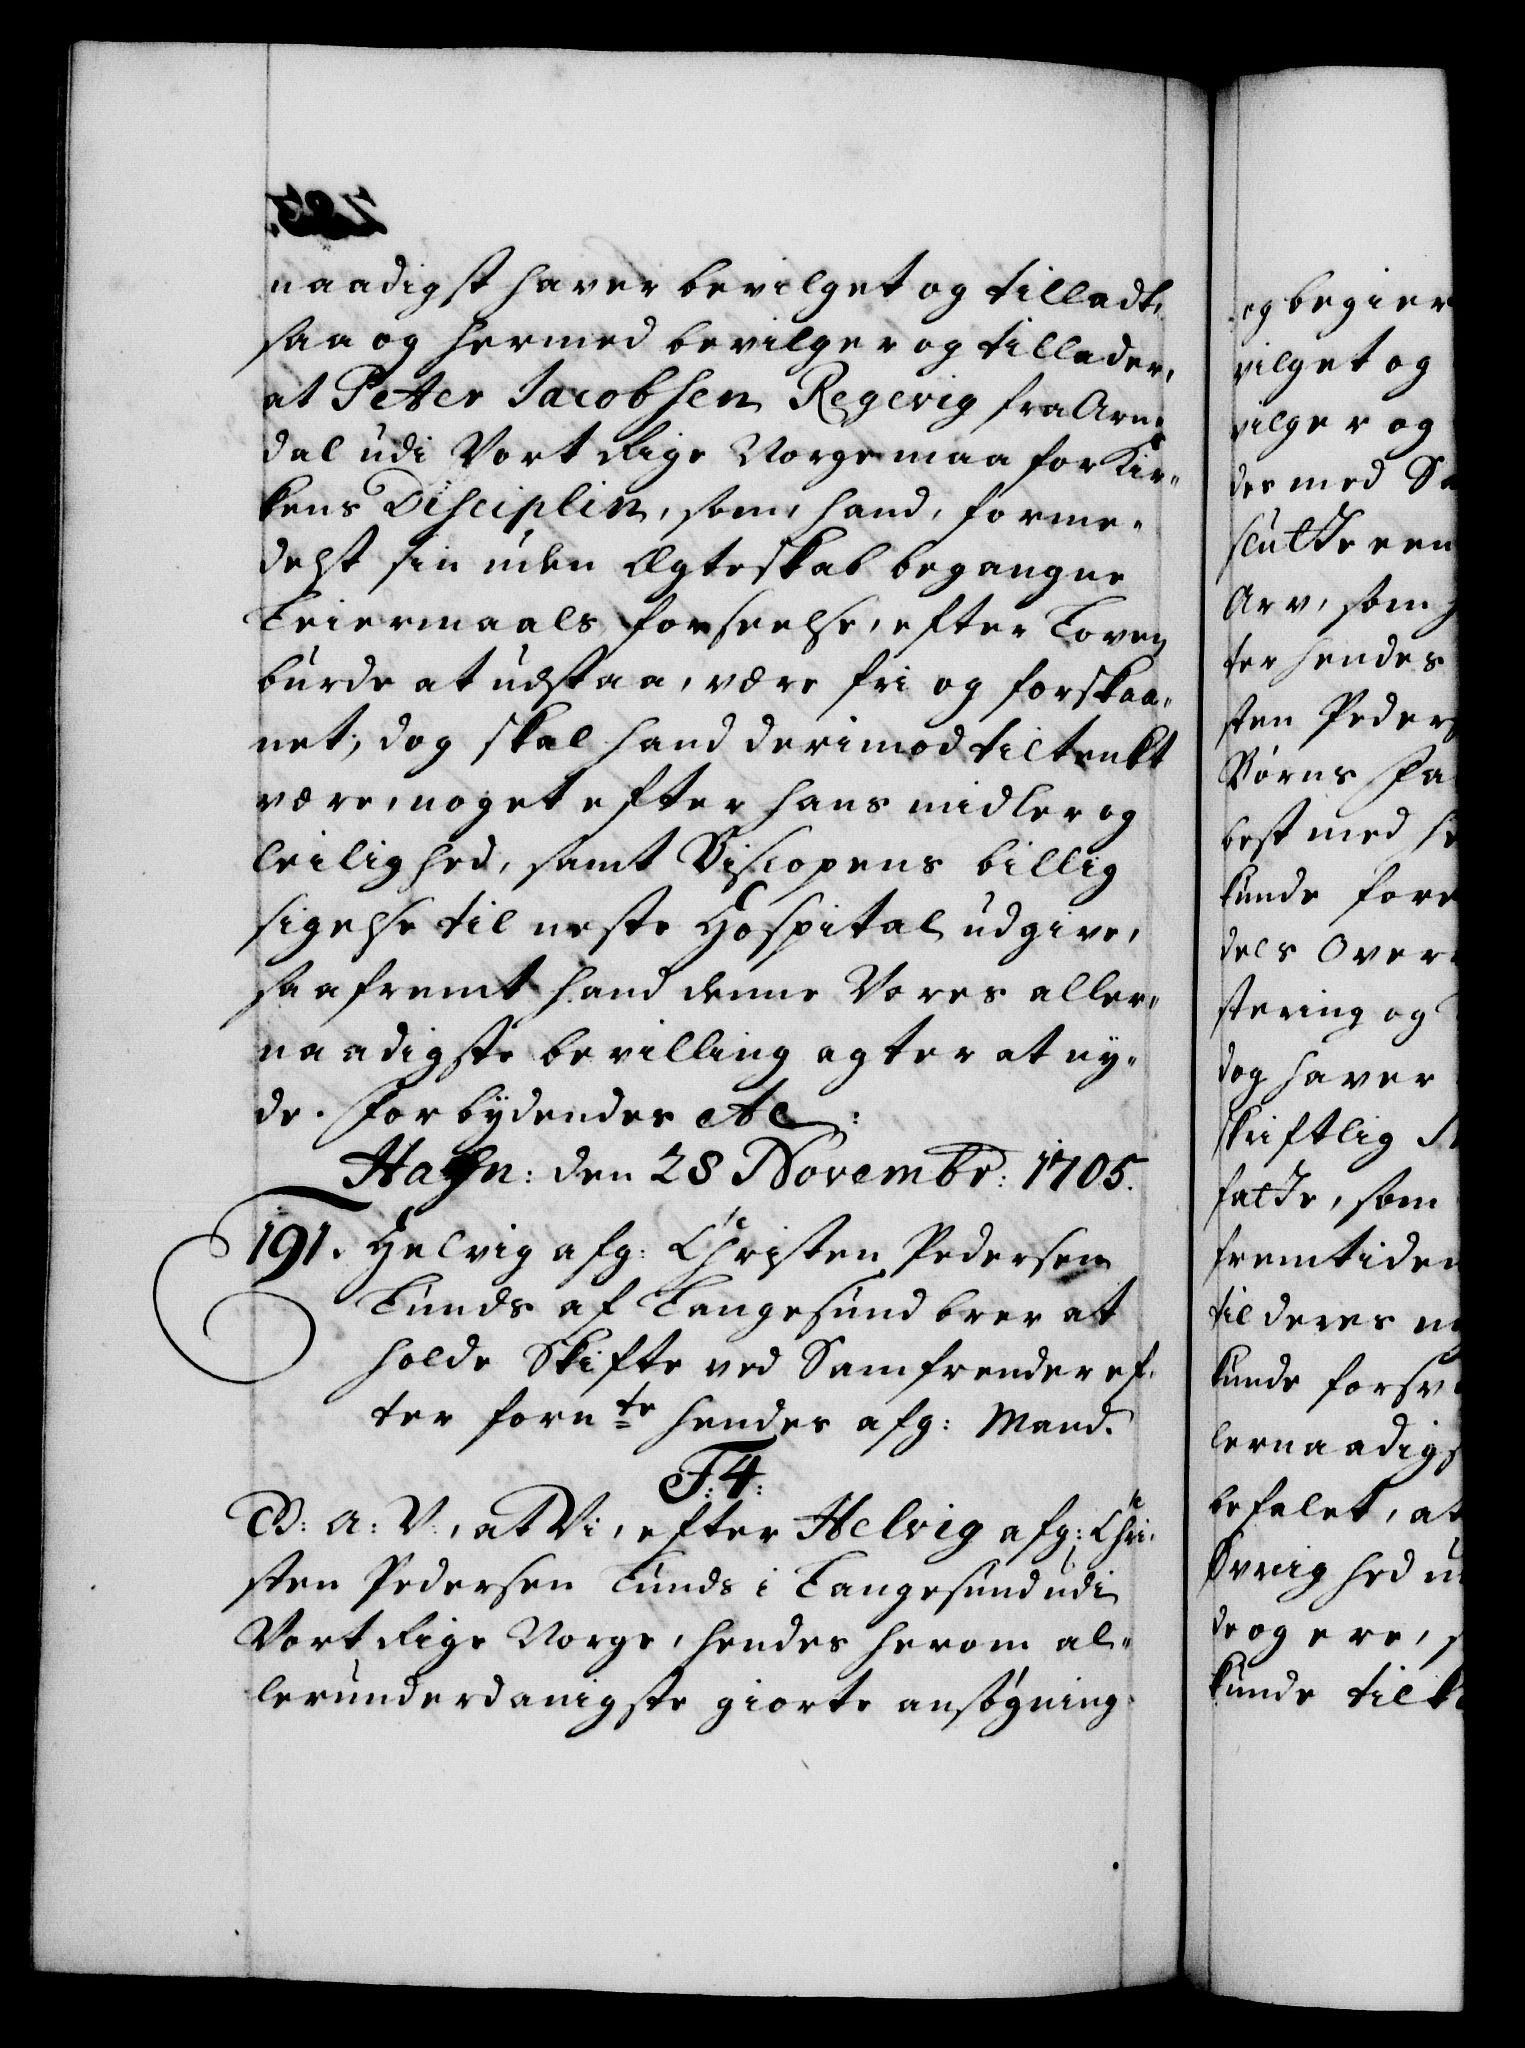 naadigst haver bevilget og tilladt,
saa og hermed bevilger og tillader,
at Peter Jacobsen Regevig fra Aren-
dal udi Vort Rige Norge maa for Kir-
kens Disciplin, som hand, forme-
delst sin uden Ægteskab begangne
Leiermaals forseelse, efter Loven
burde at udstaa, være fri og forskaa-
net; dog skal hand derimod tiltenkt
være, noget efter hans midler og
leilighed, samt Biscopens billig
sigelse til neste Hospital udgive,
saafremt hand denne Vores aller-
naadigste bevilling agter at ny-
de. Forbydendes etc:
Hafn: den 28 Novembr: 1705.
191. Helvig afg: Christen Pedersen
Lunds af Langesund brev at
holde Skifte ved Samfrender ef-
ter fornte hendes afg: Mand.
F: 4:
G: A: V:, at Vi, efter Helvig afg: Chri-
sten Pedersen Lunds i Langesund udi
Vort Rige Norge, hendes herom al-
lerunderdanigste giorte ansøgning
og begier
vilget og
vilger og
der med
slutte een
Arv, som
ter hendes
sten Peders
Børns
best med
kunde fore
dels Over
stering og
dog haver
skriftlig
fatte, som
fremtiden
til deres
kunde forsv
lernaadigs
befalet, at
Øvrighed
de og ere,
kunde